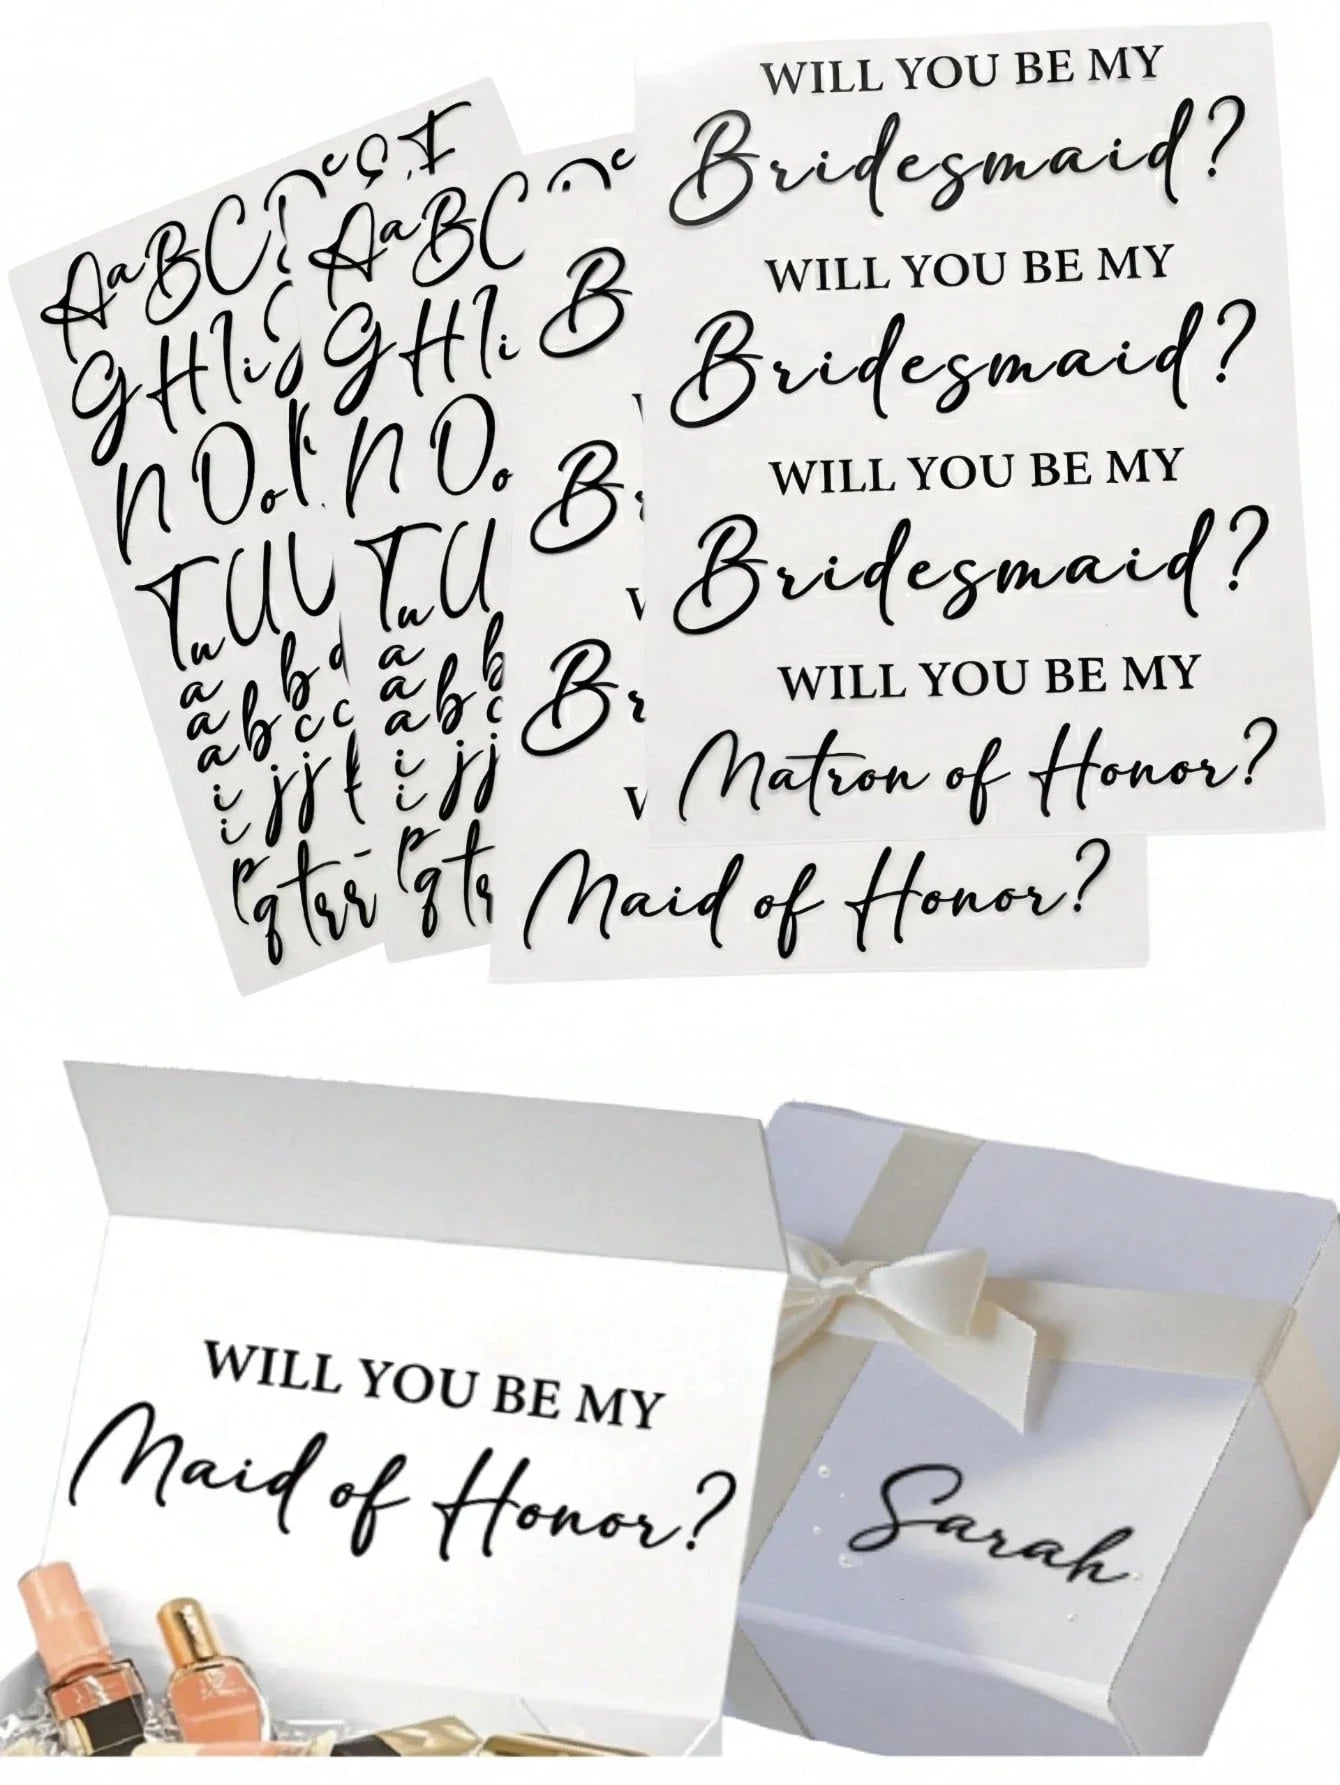 WILL YOU BE MY
Bridesmaid?
WILL YOU BE MY
Bridesmaid?
WILL YOU BE MY
Bridesmaid?
WILL YOU BE MY
Matron of Honor?
Maid of Honor?
A a B C
G H I i J
N O o
T u U U
a b d
a b c c
a
i j j
i
p q t r r
A a B C
G H I i
N O o
T u U
a b
a b c
a
i j j
i
p q t r
B
B
B r
WILL YOU BE MY
Maid of Honor?
Sarah